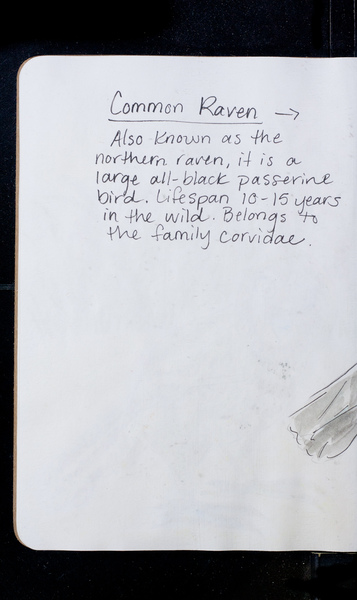 Common Raven →
Also known as the
northern raven, it is a
large all-black passerine
bird. Lifespan 10-15 years
in the wild. Belongs to
the family corvidae.